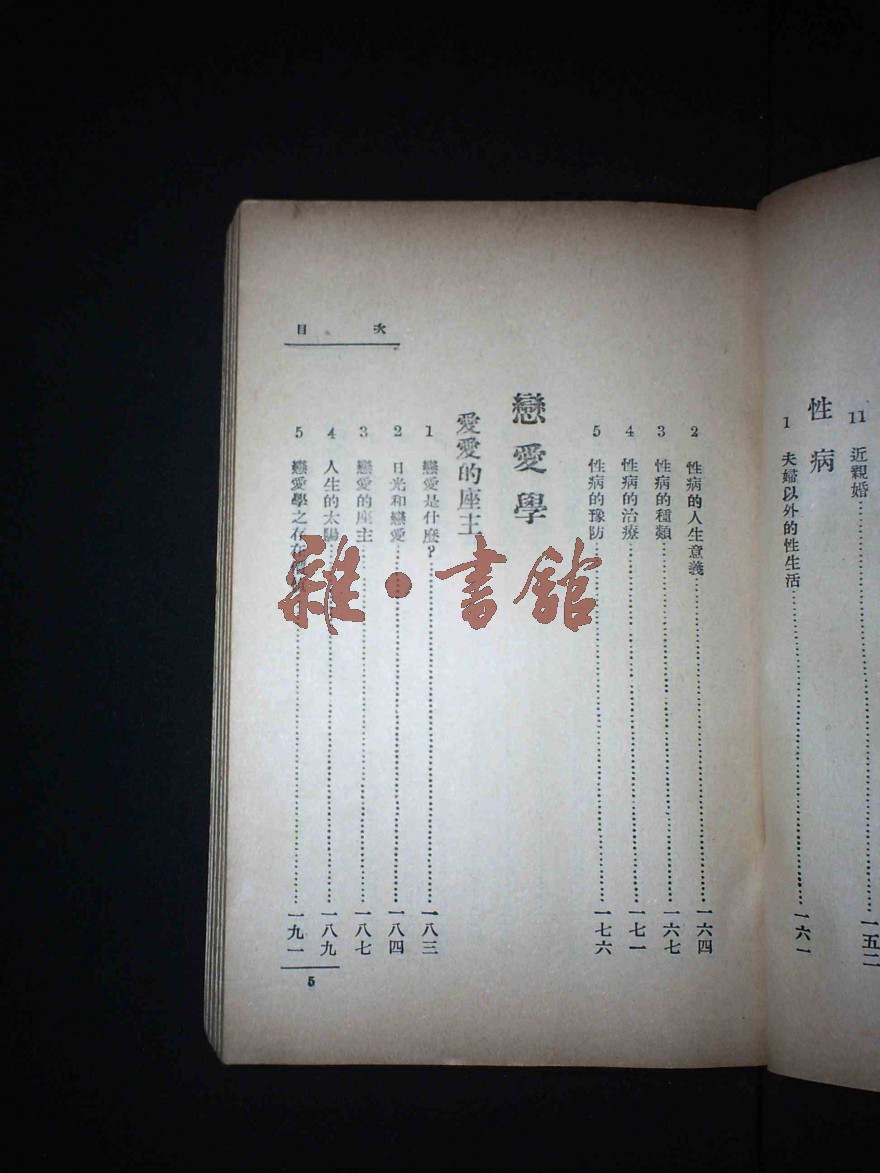 11 近親婚……一五二
性病
1 夫婦以外的性生活……一六一
目次
2 性病的人生意義……一六四
3 性病的種類……一六七
4 性病的治療……一七一
5 性病的豫防……一七六
戀愛學
愛愛的座主
1 戀愛是什麽?……一八三
2 日光和戀愛……一八四
3 戀愛的座主……一八七
4 人生的太陽……一八九
5 戀愛學之存在……一九一
5
雜·書館